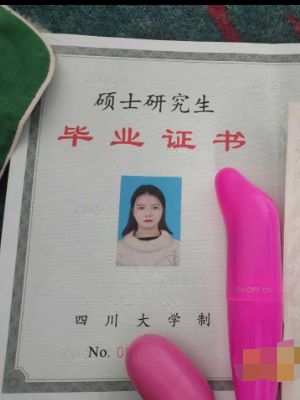 硕士研究生
毕业证书
四川大学制
No. 0
ON OFF ON